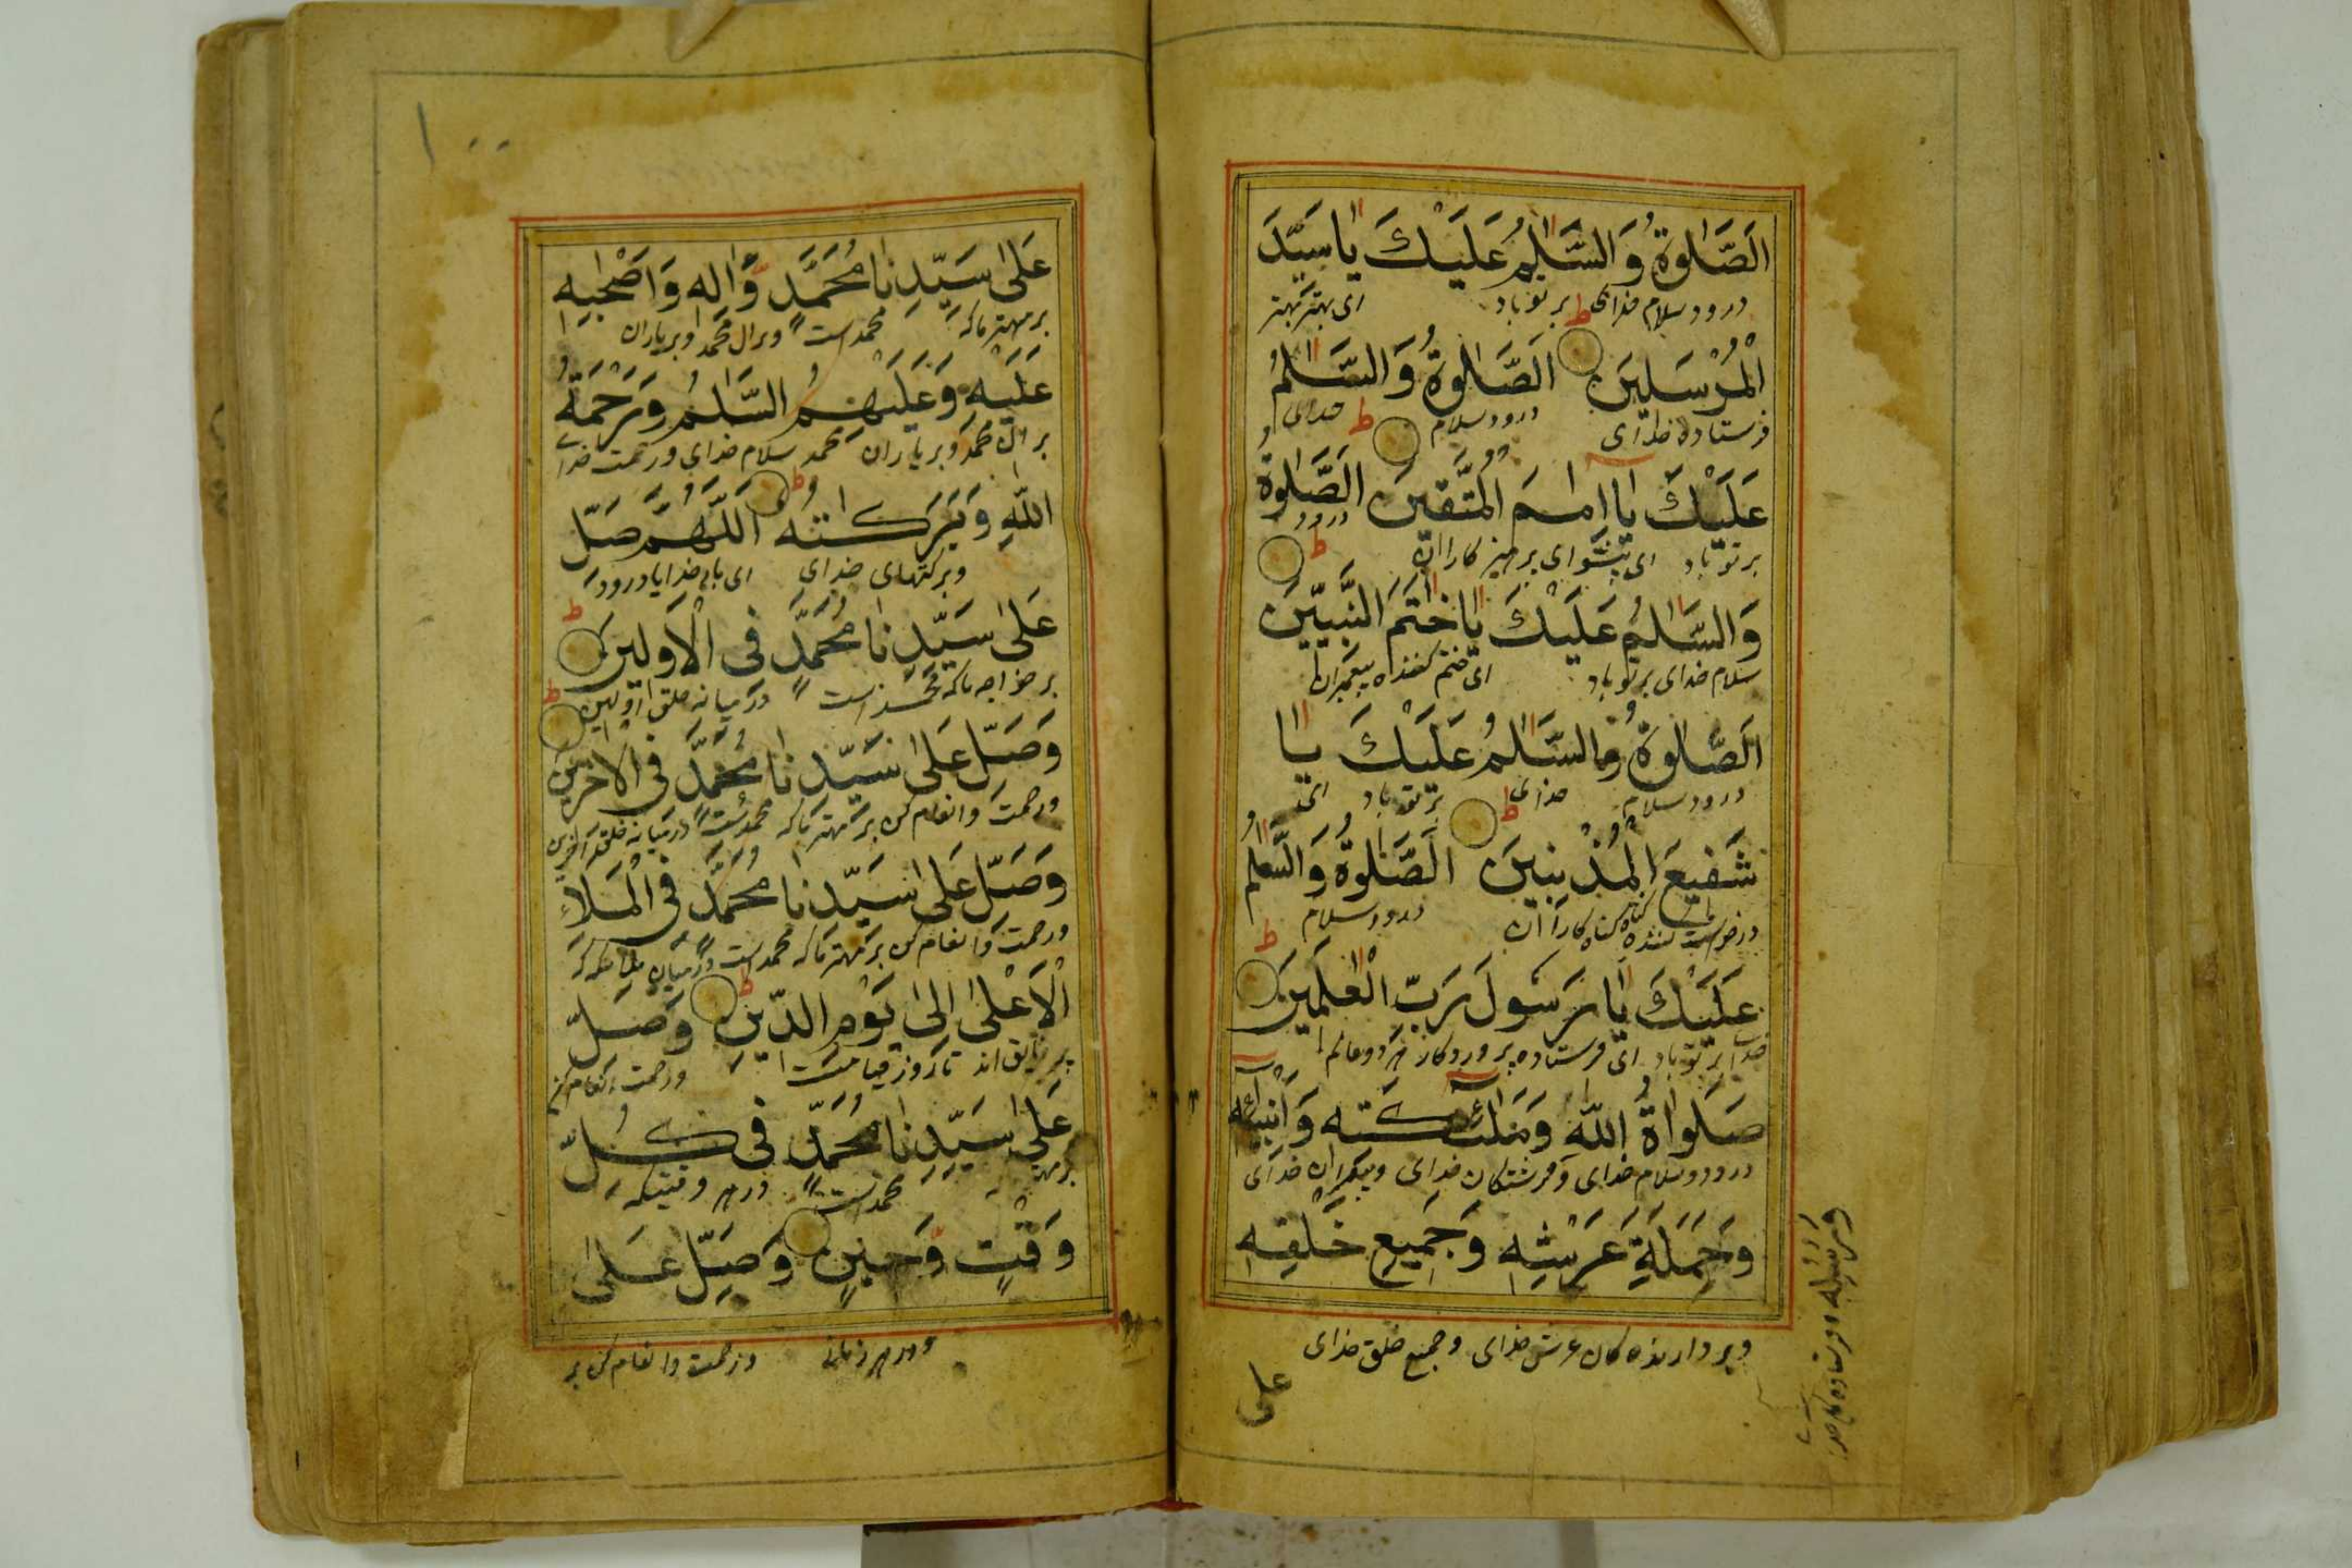 اَلصَّلٰوةُ وَالسَّلٰمُ عَلَيْكَ يَا سَيِّدَ
درود سلام خدای بر تو باد ای بهتر مهتر
الْمُرْسَلِيْنَ اَلصَّلٰوةُ وَالسَّلٰمُ
فرستاده خدای درود سلام خدای
عَلَيْكَ يَا اِمَامَ الْمُتَّقِيْنَ اَلصَّلٰوةُ
بر تو باد ای پیشوای پرهیز کاران درود
وَالسَّلٰمُ عَلَيْكَ يَا خٰتَمَ النَّبِيِّيْنَ
سلام خدای بر تو باد ای ختم کننده پیغمبران
اَلصَّلٰوةُ وَالسَّلٰمُ عَلَيْكَ يَا
درود سلام خدای بر تو باد ای
شَفِيْعَ الْمُذْنِبِيْنَ اَلصَّلٰوةُ وَالسَّلٰمُ
درخواست کننده گناه کاران درود سلام
عَلَيْكَ يَا رَسُوْلَ رَبِّ الْعٰلَمِيْنَ
خدای بر تو باد ای فرستاده پروردگار هر دو عالم
صَلَوَاةُ اللّٰهِ وَمَلٰئِكَتِهٖ وَاَنْبِيَائِهٖ
درود و سلام خدای و فرشتگان خدای و پیغمبران خدای
وَرُسُلِهٖ و فرستاده های خدا
وَحَمَلَةِ عَرْشِهٖ وَجَمِيْعِ خَلْقِهٖ
و بردارنده کان عرش خدای و جمیع خلق خدای
علی
۱۰۰
عَلٰى سَيِّدِنَا مُحَمَّدٍ وَّاٰلِهٖ وَاَصْحٰبِهٖ
بر مهتر ما که محمد است و بر ال محمد و بر یاران
عَلَيْهِ وَعَلَيْهِمُ السَّلٰمُ وَرَحْمَةُ
بر ال محمد و بر یاران محمد سلام خدای و رحمت خدای
اللّٰهِ وَبَرَكَاتُهٗ اَللّٰهُمَّ صَلِّ
و برکتهای خدای ای بار خدایا درود
عَلٰى سَيِّدِنَا مُحَمَّدٍ فِى الْاَوَّلِيْنَ
بر خواجه ما که محمد است در میانه خلق اولین
وَصَلِّ عَلٰى سَيِّدِنَا مُحَمَّدٍ فِى الْاٰخِرِيْنَ
و رحمت و انعام کن بر مهتر ما که محمد است در میانه خلق اخرین
وَصَلِّ عَلٰى سَيِّدِنَا مُحَمَّدٍ فِى الْمَلَاِ
و رحمت و انعام کن بر مهتر ما که محمد است در میان ملایکه که
الْاَعْلٰى اِلٰى يَوْمِ الدِّيْنِ وَصَلِّ
تا روز قیامت و رحمت و انعام کن
عَلٰى سَيِّدِنَا مُحَمَّدٍ فِى كُلِّ
بر مهتر محمد است در هر وقتیکه
وَقْتٍ وَّحِيْنٍ وَصَلِّ عَلٰى
و در هر زمانی و رحمت و انعام کن بر